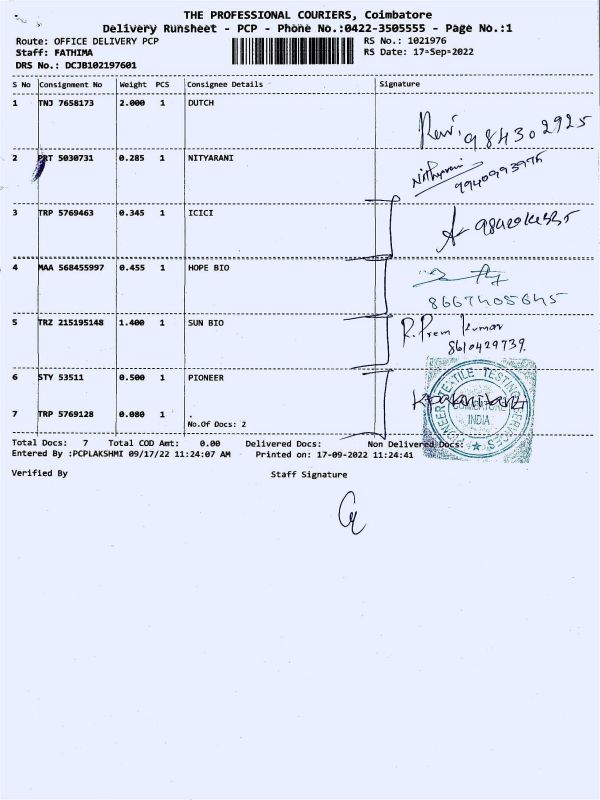 THE PROFESSIONAL COURIERS, Coimbatore
Delivery Runsheet - PCP - Phone No.:0422-3505555 - Page No.:1
Route: OFFICE DELIVERY PCP
RS No.: 1021976
Staff: FATHIMA
RS Date: 17-Sep-2022
DRS No.: DCJB102197601
S No Consignment No Weight PCS Consignee Details Signature
1 TNJ 7658173 2.000 1 DUTCH
Ravi. 984302925
2 PRT 5030731 0.285 1 NITYARANI
Nithyarani
9940993975
3 TRP 5769463 0.345 1 ICICI
4 MAA 568455997 0.455 1 HOPE BIO
8667405645
5 TRZ 215195148 1.400 1 SUN BIO
R. Prem Kumar
8610429739.
6 STY 53511 0.500 1 PIONEER
PIONEER TEXTILE TESTING SERVICES
COIMBATORE
INDIA
7 TRP 5769128 0.080 1 .
No.Of Docs: 2
Total Docs: 7 Total COD Amt: 0.00 Delivered Docs: Non Delivered Docs:
Entered By :PCPLAKSHMI 09/17/22 11:24:07 AM Printed on: 17-09-2022 11:24:41
Verified By Staff Signature